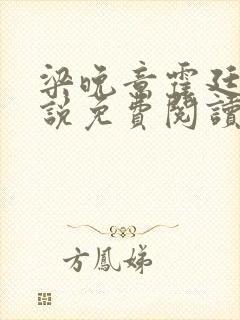 梁晚音霍廷
說免費閱讀
方鳳娣